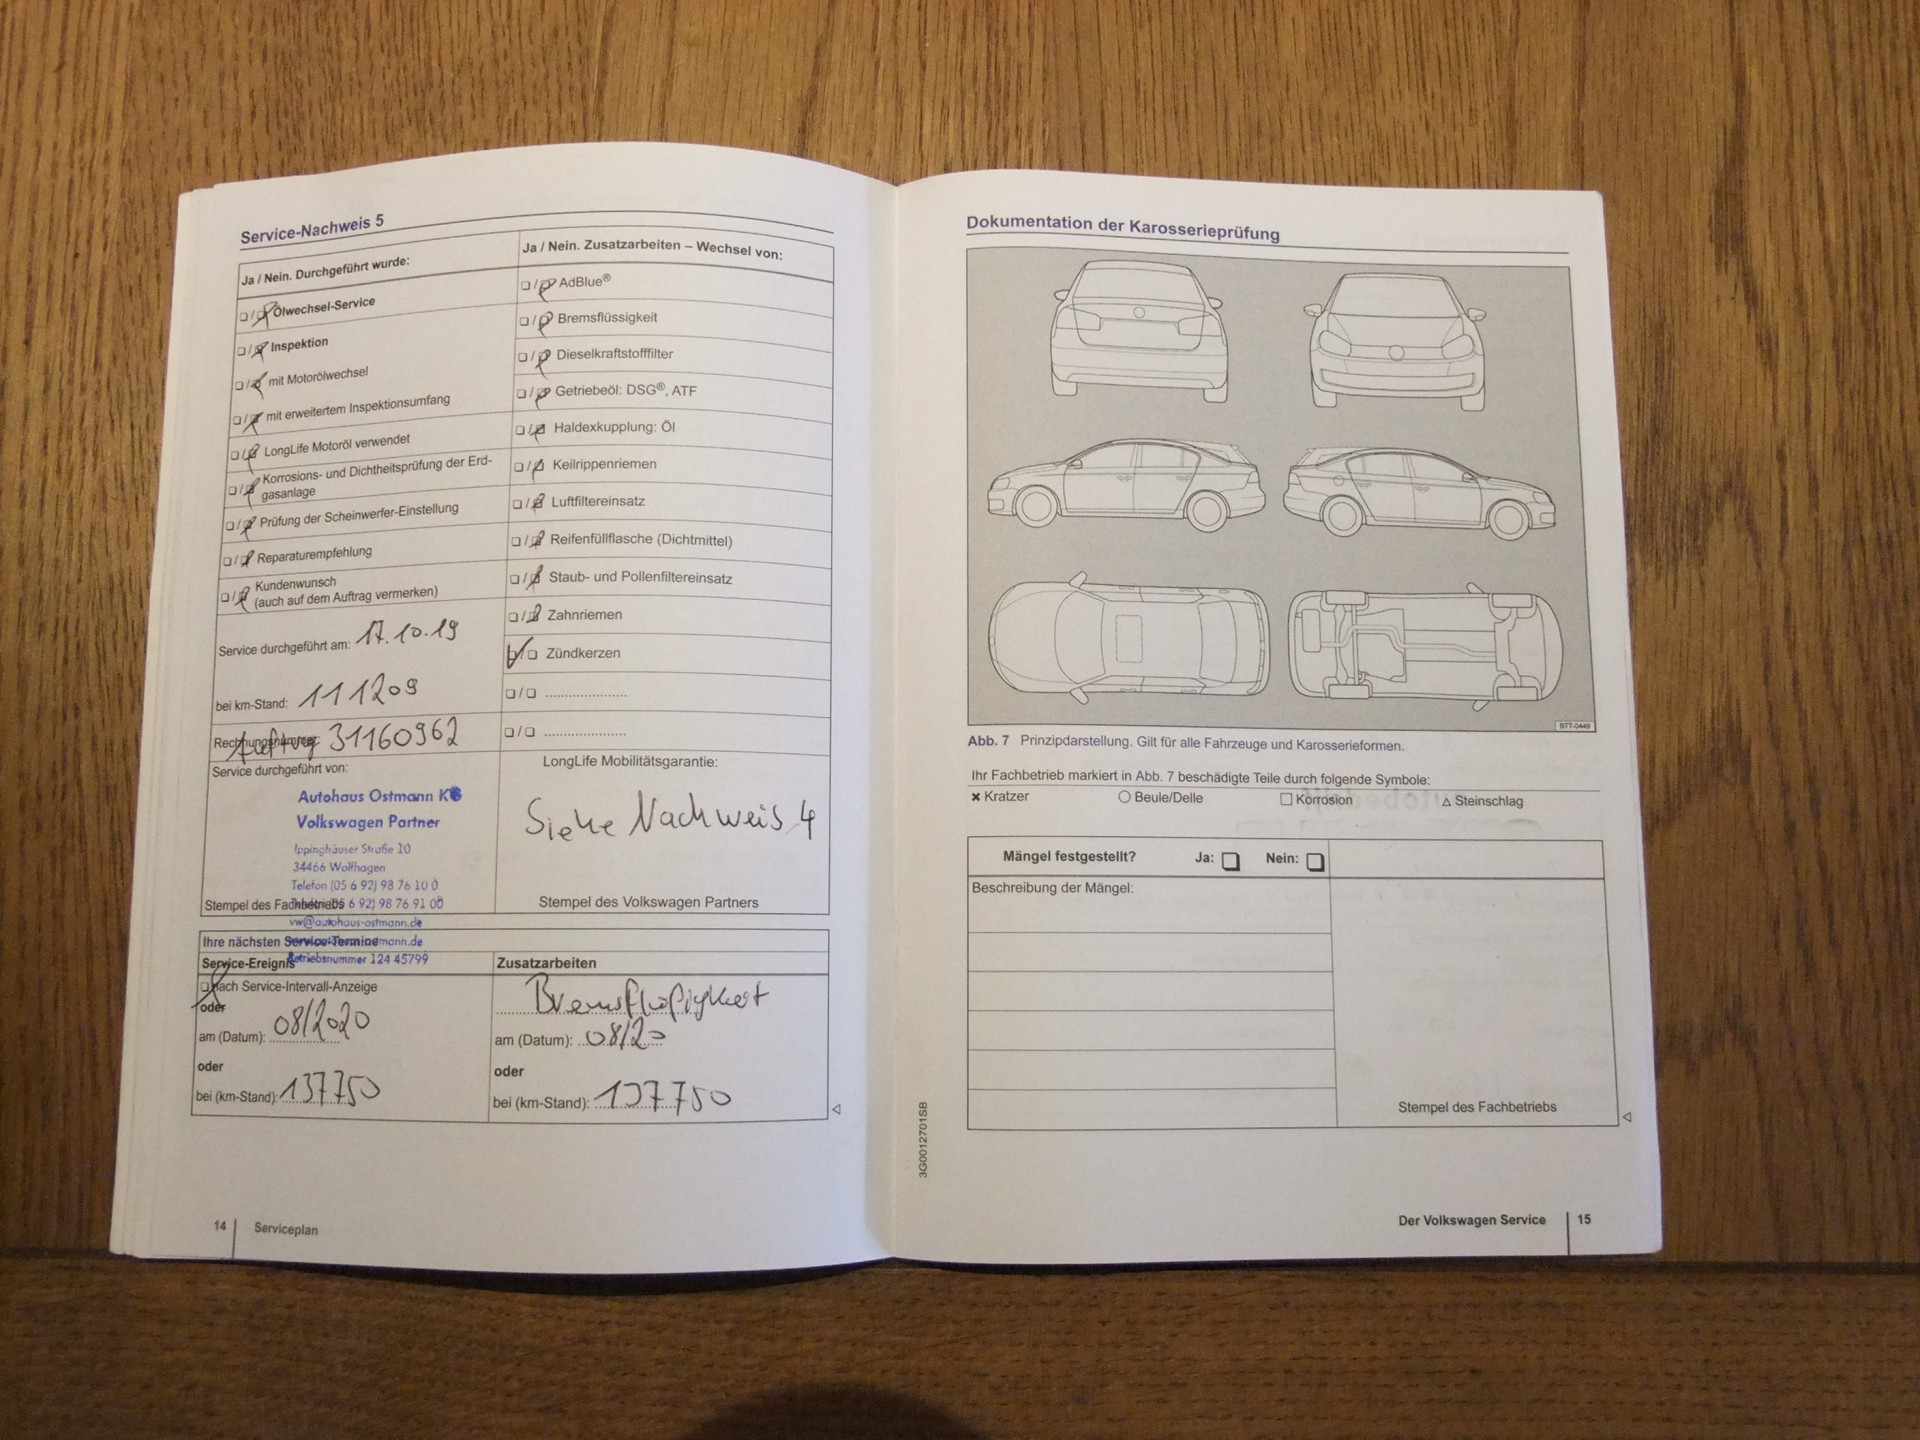 Service-Nachweis 5
Ja / Nein. Durchgeführt wurde:
❏ / ❏ Ölwechsel-Service
❏ / ❏ Inspektion
❏ / ❏ mit Motorölwechsel
❏ / ❏ mit erweitertem Inspektionsumfang
❏ / ❏ LongLife Motoröl verwendet
❏ / ❏ Korrosions- und Dichtheitsprüfung der Erd-
gasanlage
❏ / ❏ Prüfung der Scheinwerfer-Einstellung
❏ / ❏ Reparaturempfehlung
❏ / ❏ Kundenwunsch
(auch auf dem Auftrag vermerken)
Service durchgeführt am: 17.10.19
bei km-Stand: 111209
Rechnungsnummer:
Auftrag 31160962
Service durchgeführt von:
Autohaus Ostmann KG
Volkswagen Partner
Ippinghäuser Straße 10
34466 Wolfhagen
Telefon (05 6 92) 98 76 10 0
Stempel des Fachbetriebs 6 92) 98 76 91 00
vw@autohaus-ostmann.de
Ja / Nein. Zusatzarbeiten – Wechsel von:
❏ / ❏ AdBlue®
❏ / ❏ Bremsflüssigkeit
❏ / ❏ Dieselkraftstofffilter
❏ / ❏ Getriebeöl: DSG®, ATF
❏ / ❏ Haldexkupplung: Öl
❏ / ❏ Keilrippenriemen
❏ / ❏ Luftfiltereinsatz
❏ / ❏ Reifenfüllflasche (Dichtmittel)
❏ / ❏ Staub- und Pollenfiltereinsatz
❏ / ❏ Zahnriemen
❏ / ❏ Zündkerzen
❏ / ❏ ....................
❏ / ❏ ....................
LongLife Mobilitätsgarantie:
Siehe Nachweis 4
Stempel des Volkswagen Partners
Ihre nächsten Service-Termine
Service-Ereignis
Betriebsnummer 124 45799
❏ nach Service-Intervall-Anzeige
oder
am (Datum): 08/2020
oder
bei (km-Stand): 137750
Zusatzarbeiten
Bremsflüßigkeit
am (Datum): 08/20
oder
bei (km-Stand): 137750
14 Serviceplan
Dokumentation der Karosserieprüfung
BTT-0449
Abb. 7 Prinzipdarstellung. Gilt für alle Fahrzeuge und Karosserieformen.
Ihr Fachbetrieb markiert in Abb. 7 beschädigte Teile durch folgende Symbole:
✖ Kratzer ○ Beule/Delle □ Korrosion △ Steinschlag
Mängel festgestellt? Ja: ❏ Nein: ❏
Beschreibung der Mängel:
Stempel des Fachbetriebs
3G0012701SB
Der Volkswagen Service 15